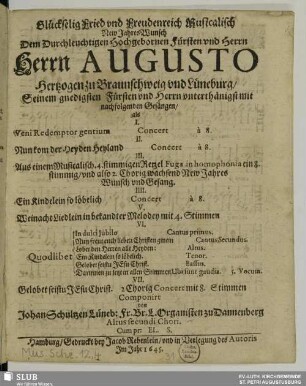 Glückselig Fried vnd Freudenreich Musicalisch
New Jahres Wunsch
Dem Durchleuchtigen Hochgebornen Fürsten vnd Herrn
Herrn AUGUSTO
Hertzogen zu Braunschweig vnd Lüneburg/
Seinem gnedigsten Fürsten vnd Herrn vnterthänigst mit
nachfolgenden Gesängen/
als
I.
Veni Redemptor gentium Concert à 8.
II.
Nun kom der Heyden Heyland Concert à 8.
III.
Aus einem Musicalisch. 4. stimmigen Kegel Fuga in homophonia ein 8.
stimmig/ vnd also 2. Chorig wachsend New Jahres
Wunsch vnd Gesang.
IIII.
Ein Kindelein so löbelich Concert à 8.
V.
Weinacht Liedlein in bekandter Melodey mit 4. Stimmen
VI.
In dulci Jubilo Cantus primus.
Nun frewt euch lieben Christen gmein Cantus Secundus.
Lobet den Herren alle Heyden: Altus.
Quodlibet Ein Kindelein so löbelich. Tenor.
Gelobet seistu JEsu Christ. Bassus.
VII.
Gelobet seistu JEsu Christ. 2 Chorig Concert mit 8. Stimmen
Componirt
von
Johan Schultzen Lüneb: Fr. Br. L. Organisten zu Dannenberg
Altus secundi Chori.
Cum pr: El. S.
Hamburg/ Gedruckt bey Jacob Rebenlein/ vnd in Verlegung des Autoris
Im Jahr 1645.
Mus Schu 12,4
SLUB
EV.-LUTH. KIRCHGEMEINDE
ST. PETRI AUGUSTUSBURG